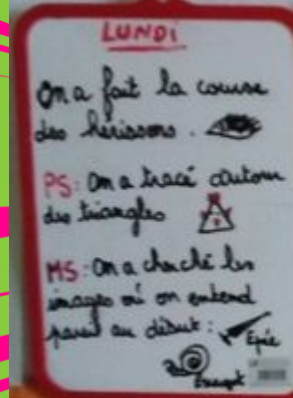 LUNDI
On a fait la course
des hérissons.
PS: On a tracé autour
des triangles
MS: On a cherché les
images où on entend
pareil au début :
Epée
Escargot